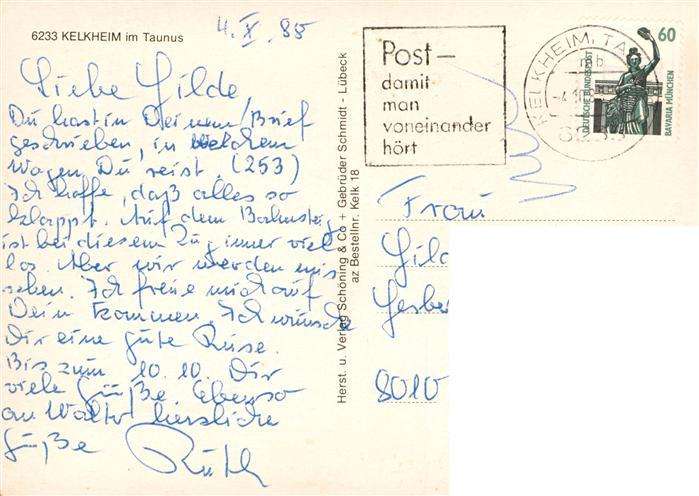 6233 KELKHEIM im Taunus
4. X. 88
Liebe Gilde
Du hast in Deinem Brief
geschrieben, in welchem
Wagen Du reist. (253)
Ich hoffe, daß alles so
klappt. Auf dem Bahnsteig
ist bei diesem Zug immer viel
los. Aber wir werden uns
sehen. Ich freue mich auf
Dein Kommen. Ich wünsche
Dir eine gute Reise.
Bis zum 10. 10. Dir
viele Grüße. Ebenso
an Walter herzliche
Grüße Ruth
Herst. u. Verlag Schöning & Co + Gebrüder Schmidt - Lübeck
az Bestellnr. Kelk 18
Post–
damit
man
voneinander
hört
KELKHEIM, TA
mb
60
DEUTSCHE BUNDESPOST
BAVARIA MÜNCHEN
Frau
Gild
8010